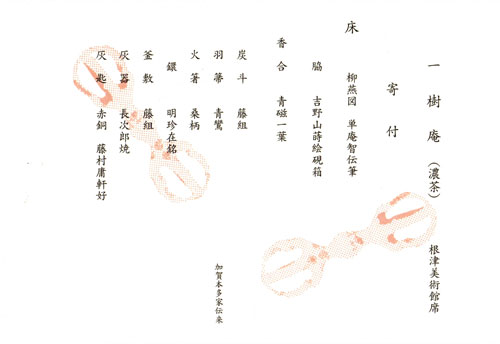 一樹庵（濃茶）　根津美術館席
寄付
床　柳燕図　単庵智伝筆
脇　吉野山蒔絵硯箱
香合　青磁一葉
炭斗　藤組
羽箒　青鸞
火箸　桑柄
鐶　明珍在銘
釜敷　藤組
灰器　長次郎焼
灰匙　赤銅　藤村庸軒好
加賀本多家伝来